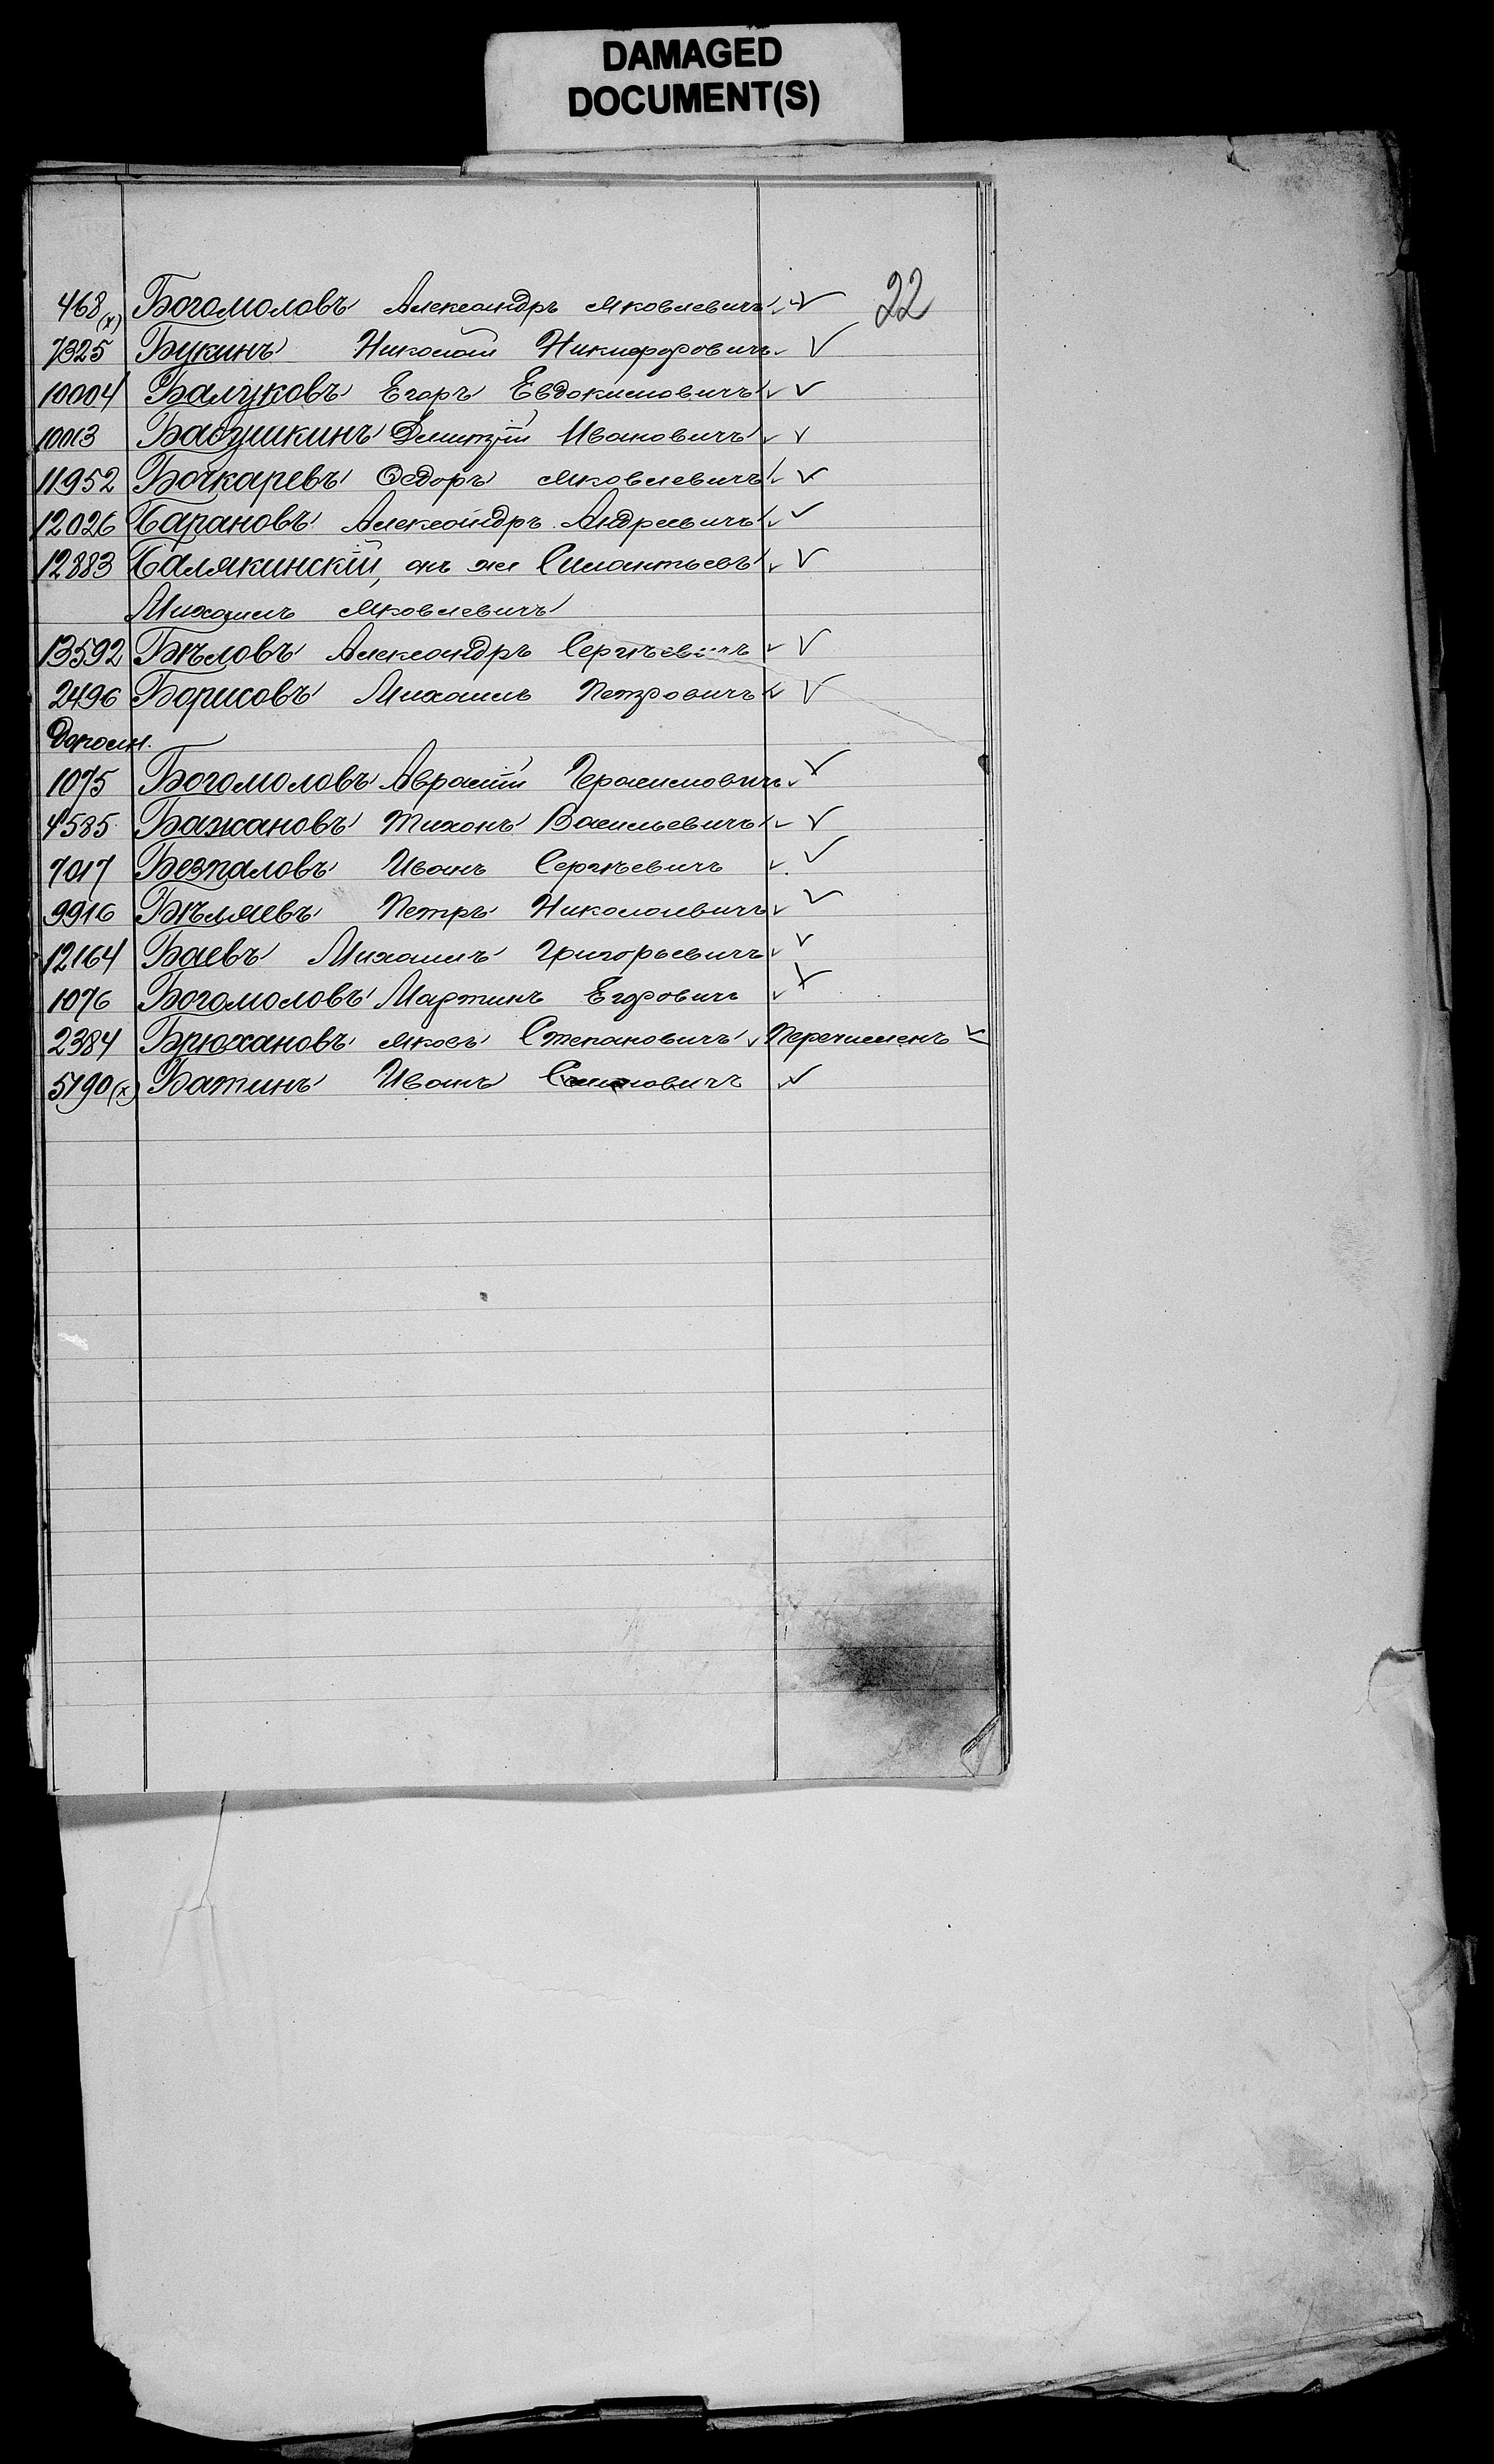 DAMAGED
DOCUMENT(S)
22
468 (х) Богомоловъ Александръ Яковлевичъ
7325 Букинъ Николай Никифоровичъ
10004 Балуковъ Егоръ Евдокимовичъ
10013 Бабушкинъ Дмитрій Ивановичъ
11952 Бочкаревъ Ѳедоръ Яковлевичъ
12026 Барановъ Александръ Андреевичъ
12883 Балякинскій, онъ же Силантьевъ
Михаилъ Яковлевичъ
13592 Бѣловъ Александръ Сергѣевичъ
2496 Борисовъ Михаилъ Петровичъ
Дополн.
1075 Богомоловъ Аврамій Герасимовичъ
4585 Бажановъ Тихонъ Васильевичъ
7017 Безпаловъ Иванъ Сергѣевичъ
9916 Бѣляевъ Петръ Николаевичъ
12164 Баевъ Михаилъ Григорьевичъ
1076 Богомоловъ Мартинъ Егоровичъ
2384 Брюхановъ Яковъ Степановичъ Перечисленъ
5190 (х) Батинъ Иванъ